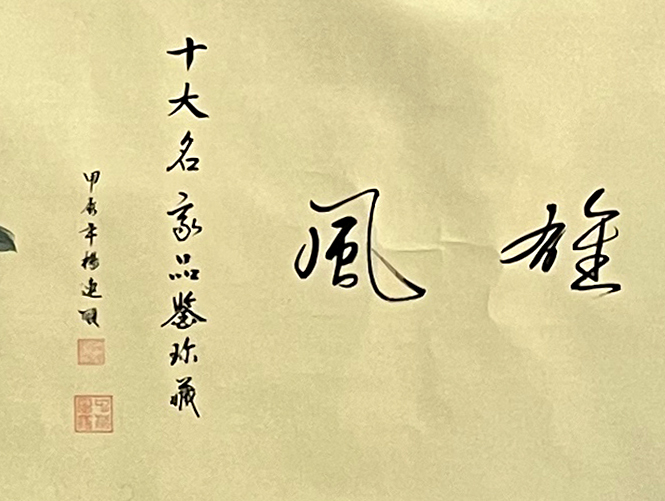 雄風
十大名家品鉴珍藏
甲辰年楊建順